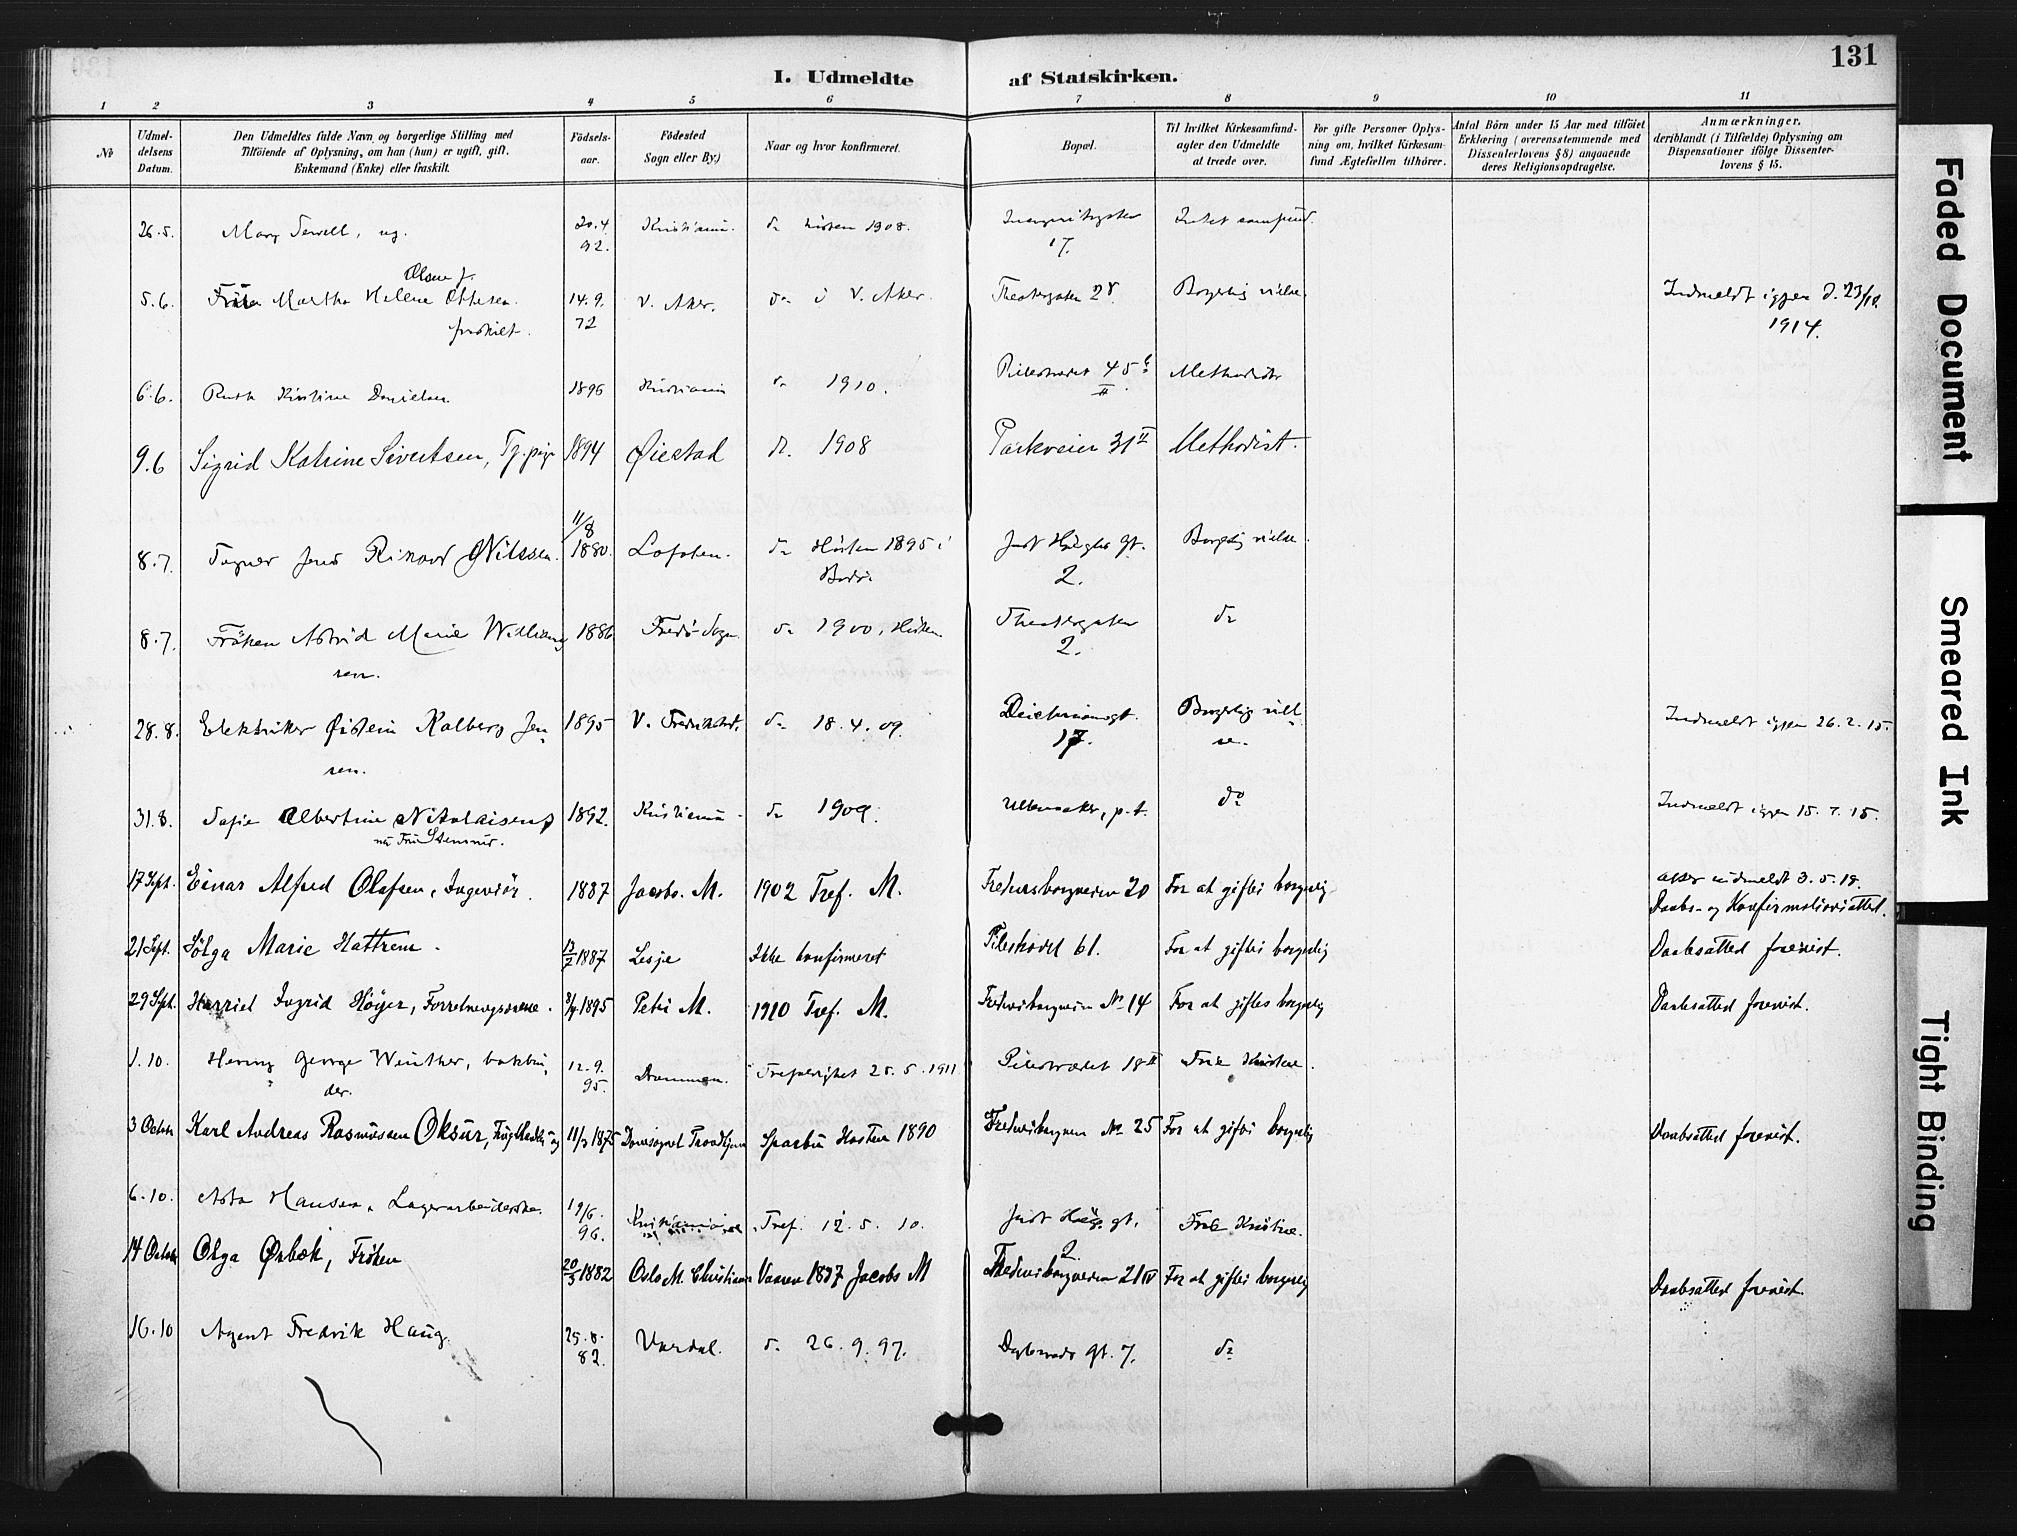 131
I. Udmeldte af Statskirken.
1 2 3 4 5 6 7 8 9 10 11
No
Udmel-
delsens
Datum.
Den Udmeldtes fulde Navn og borgerlige Stilling med
Tilföiende af Oplysning, om han (hun) er ugift, gift,
Enkemand (Enke) eller fraskilt.
Födsels-
aar.
Födested
Sogn eller By.)
Naar og hvor konfirmeret.
Bopæl.
Til hvilket Kirkesamfund-
agter den Udmeldte
at træde over.
For gifte Personer Oplys-
ning om, hvilket Kirkesam-
fund Ægtefællen tilhörer.
Antal Börn under 15 Aar med tilföiet
Erklæring (overensstemmende med
Dissenterlovens § 8) angaaende
deres Religionsopdragelse.
Anmærkninger,
deriblandt (i Tilfælde) Oplysning om
Dispensationer ifölge Dissenter-
lovens § 15.
26.5. Mary Sewell, ug. 20.4 92. Kristiania. do høsten 1908. 17. Intet samfund.
Olsen f.
5.6. Martha Helene Ottesen 14.9. 72 V. Aker. do i V. Aker. Theatergaten 28 Borgerlig vielse. Indmeldt igjen d. 23/12 1914.
fraskilt.
6.6. Ruth Kristine Danielsen 1896 Kristiania do 1910. Pilestrædet 45 II Methodist
9.6 Sigrid Katrine Sivertsen, Tj.pige 1894 Øiestad do. 1908 Parkveien 31 II Methodist.
8.7. Jens Rikard Nilssen. 11/8 1880. Lofoten. do Høsten 1895 i Bodø. Just Høeghs gt. 2. Borgerlig vielse
8.7. Frøken Astrid Marie William 1886 do 1900, Høsten Theatergaten 2. do
sen.
28.8. Elektriker Øistein Kalberg Jen 1895 V. Fredrikstad. do 18.4.09. Deichmansgt. 17. Borgerlig viel se. Indmeldt igjen 26.2.15.
sen.
31.8. Sofie Albertine Nikolaisen 1892. Kristiania do 1909. Ullensaker, p.t. do Indmeldt igjen 15.7.15.
nu Fru Stensrud.
17 Sept. Einar Alfred Olafsen, Ingeniør. 1887 Jacobs. M. 1902 Tref. M. Fredensborgveien 20 For at giftes borgerlig indmeldt 3.5.18.
Daabs- og Konfirmationsattest.
21 Sept. Sølga Marie Hattrem. 13/7 1887 Lesje Ikke konfirmeret Pilestrædet 61. For at giftes borgerlig Daabsattest forevist.
29 Sept. Harriet Ingrid Høyer, 1895 Petri M. 1910 Tref. M. Fredensborgveien No 14 For at giftes borgerlig Daabsattest forevist.
1.10. Henry George Winther, bokbin 12.9. 95. Drammen. Trefoldighet 25.5.1911 Pilestrædet 18 II Frie Kristne.
der.
3 Octobr Karl Andreas Rasmussen Oksur, 11/3 1875 Domsognet Trondhjem Sparbu Høsten 1890 Fredensborgveien No 25 For at giftes borgerlig Daabsattest forevist.
6.10. Asta Hansen, Lagerarbeiderske. 19/6. 96. Kristiania Tref. 12.5.10. Just Høegs gt. 2. Frie Kristne.
14 Octobr Olga Ørbæk, Frøken 20/3 1882 Oslo M. Christiania Vaaren 1897 Jacobs M Fredensborgveien 21 IV For at giftes borgerlig Daabsattest forevist.
16.10 Agent Fredrik Haug. 25.8. 82. Vardal. do 26.9.97. gt. 7. do
Faded Document
Smeared Ink
Tight Binding